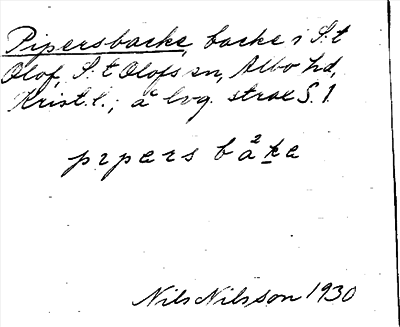 Pipersbacke, backe i S:t
Olof, S:t Olofs sn, Albo hd,
Krist. l.; å lvg. strax S. 1.
pipers bà²ke
Nils Nilsson 1930